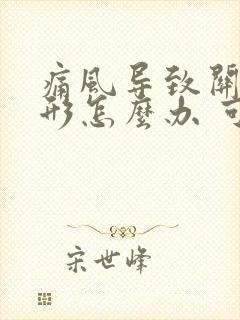 痛風导致關
形怎麼办 可
宋世峰